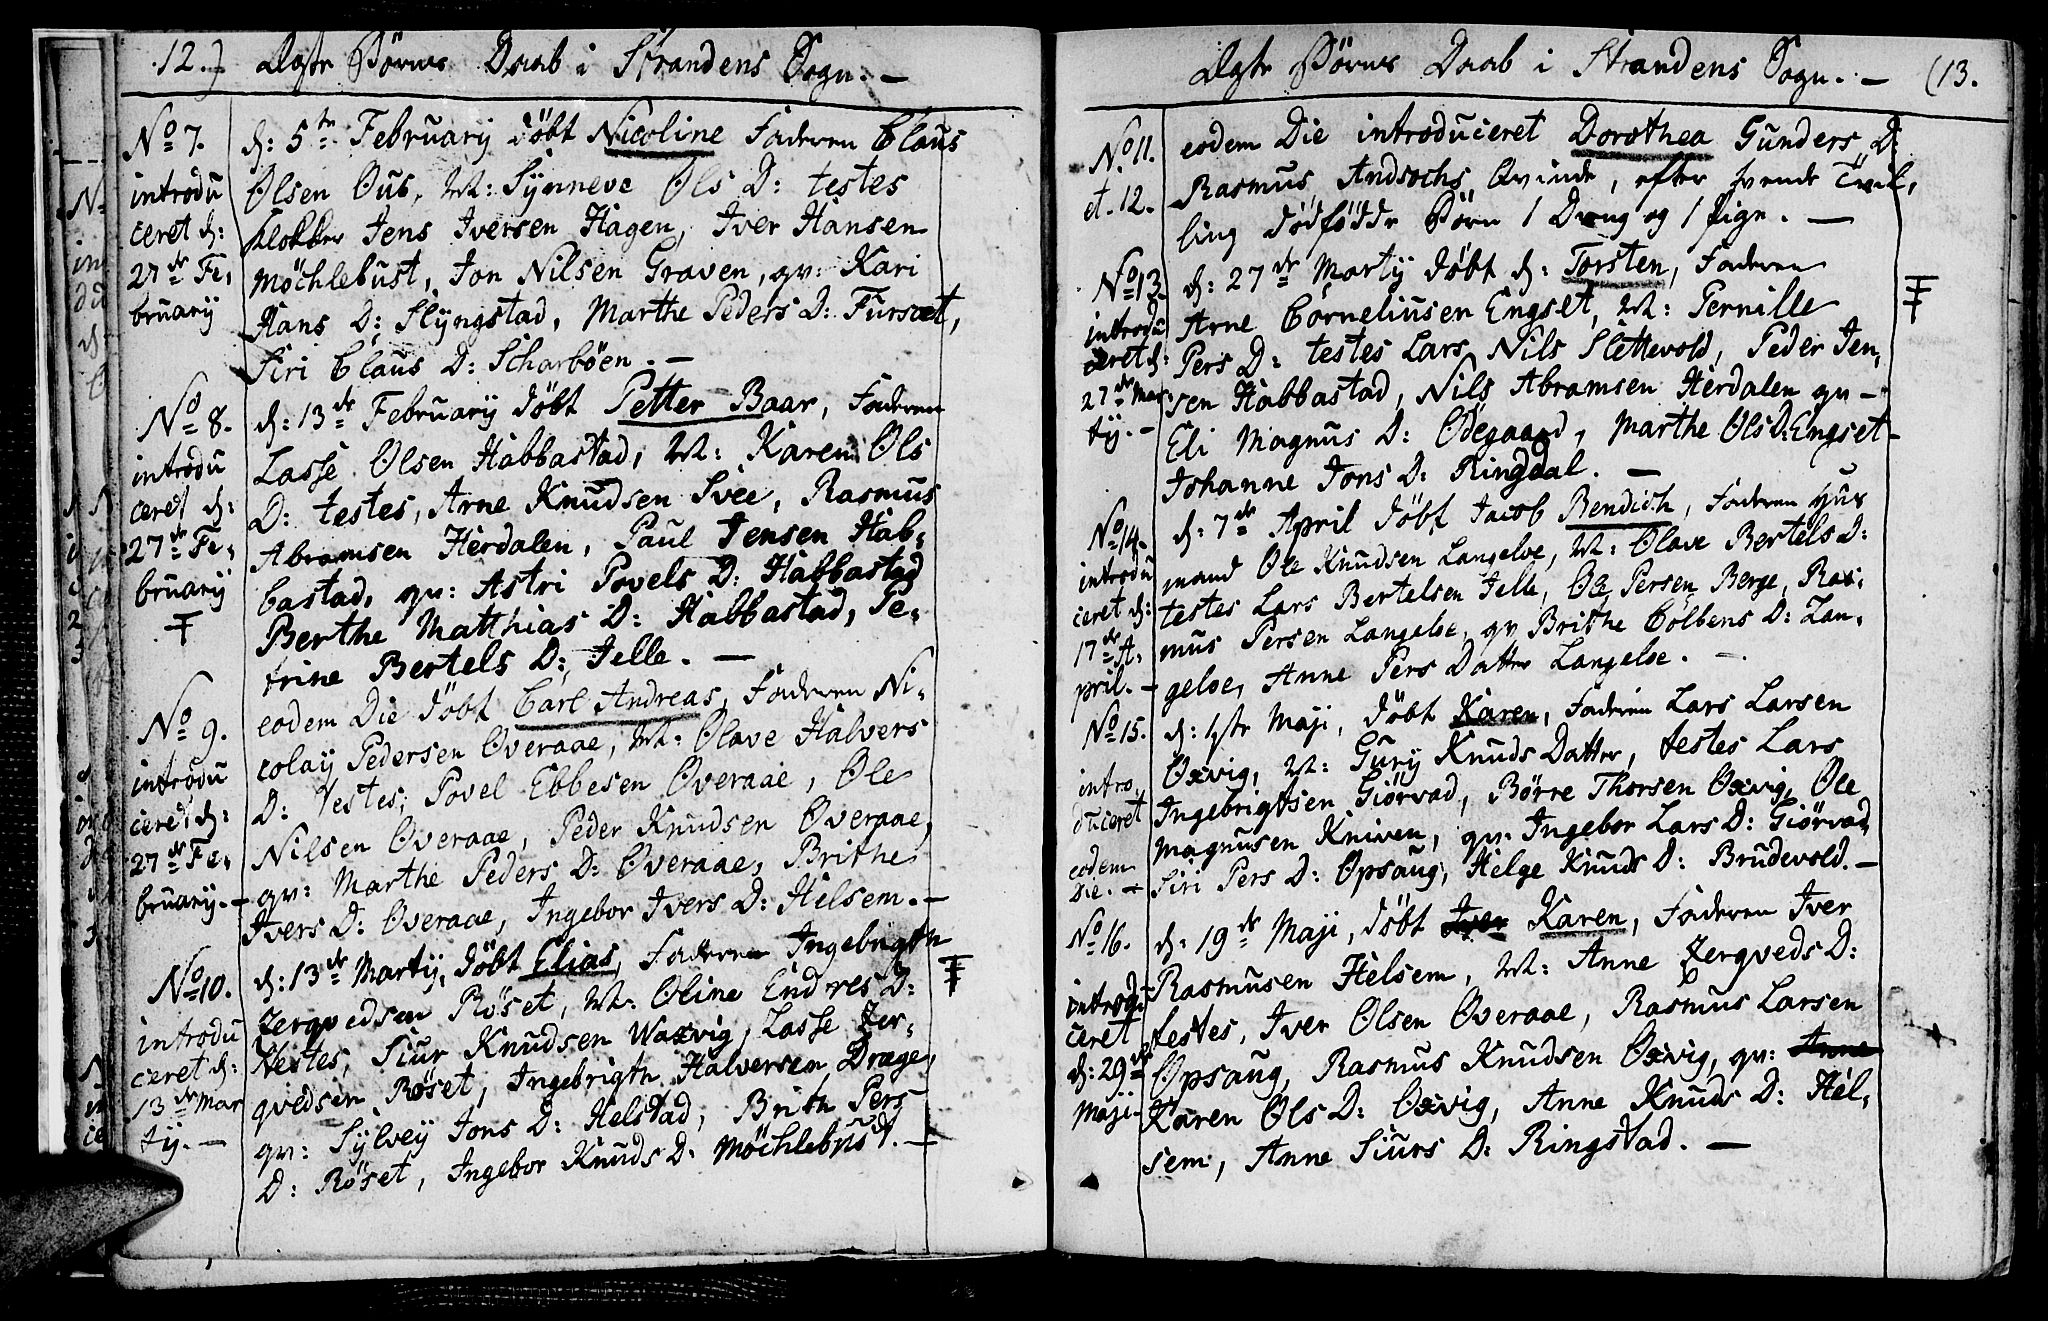 12.) Ægte Børns Daab i Strandens Sogn. —
No 7.
introdu
ceret d:
27de Fe,
bruary
d: 5te February døbt Nicoline Faderen Claus
Olsen Ous, M: Synneve Ols D: testes
Klokker Jens Iversen Hagen, Iver Hansen
Møchlebust, Jon Nilsen Graven, qv: Kari
Hans D: Slyngstad, Marthe Peders D: Fursæt,
Siri Claus D: Scharbøen. —
No 8.
introdu
ceret d:
27de Fe,
bruary
d: 13de February døbt Petter Baar, Faderen
Lasse Olsen Habbastad, M: Karen Ols
D: testes, Arne Knudsen Svee, Rasmus
Abramsen Herdalen, Paul Jensen Hab,
bastad, qv: Astri Povels D: Habbastad
Berthe Matthias D: Habbastad, Pe,
trine Bertels D: Jelle. —
No 9.
introdu
ceret d:
27de Fe,
bruary. —
eodem Die døbt Carl Andreas, Faderen Ni,
colay Pedersen Overaae, M: Olave Halvers
D: Testes, Povel Ebbesen Overaae, Ole
Nilsen Overaae, Peder Knudsen Overaae,
qv: Marthe Peders D: Overaae, Brithe
Ivers D: Overaae, Ingebor Ivers D: Helsem. —
No 10.
introdu
ceret d:
13de Mar
ty. —
d: 13de Marty, døbt Elias, Faderen Ingebrigth
Zergvedsen Røset, M: Oline Endres D:
Testes, Siur Knudsen Waxvig, Lasse Zer,
gvedsen Røset, Ingebrigth Halversen Drage,
qv: Sylvey Jons D: Helstad, Brith Pers
D: Røset, Ingebor Knuds D: Møchlebust. —
Ægte Børns Daab i Strandens Sogn. — (13.
No 11.
et. 12.
eodem Die introduceret Dorothea Gunders D:
Rasmus Andsochs Qvinde, efter tvende Tvil,
ling dødfødde Børn 1 Dreng og 1 Pige. —
No 13
introdu
ceret d:
27de Mar,
ty. —
d: 27de Marty døbt d: Torsten, Faderen
Arne Corneliusen Engset, M: Pernille
Pers D: testes Lars Nils Slettevold, Peder Jen,
sen Habbastad, Nils Abramsen Herdalen qv —
Eli Magnus D: Ødegaard, Marthe Ols D: Engset
Johanne Jons D: Ringdal. —
No 14.
introdu
ceret d:
17de A,
pril. —
d: 7de April døbt Jacob Bendicth, Faderen Huus
mand Ole Knudsen Langeloe, M: Olave Bertels D:
testes Lars Bertelsen Jelle, Ole Persen Berge, Ras,
mus Persen Langeloe, qv Brithe Colbens D: Lan,
geloe, Anne Pers Datter Langeloe. —
No 15.
intro,
duceret
eodem
Die. —
d: 1ste Maji, døbt Karen, Faderen Lars Larsen
Oxvig, M: Gury Knuds Datter, testes Lars
Ingebrigtsen Giørvad, Børre Thorsen Oxvig, Ole
Magnusen Kniven, qv: Ingebor Lars D: Giørvad
Siri Pers D: Opsaug, Helge Knuds D: Brudevold. —
No 16.
introdu
ceret
d: 29de
Maji.
d: 19de Maji, døbt Iver Karen, Faderen Iver
Rasmusen Helsem, M: Anne Zergveds D:
testes, Iver Olsen Overaae, Rasmus Larsen
Opsaug, Rasmus Knudsen Oxvig, qv: Anne
Karen Ols D: Oxvig, Anne Knuds D: Hel,
sem, Anne Siurs D: Ringstad. —